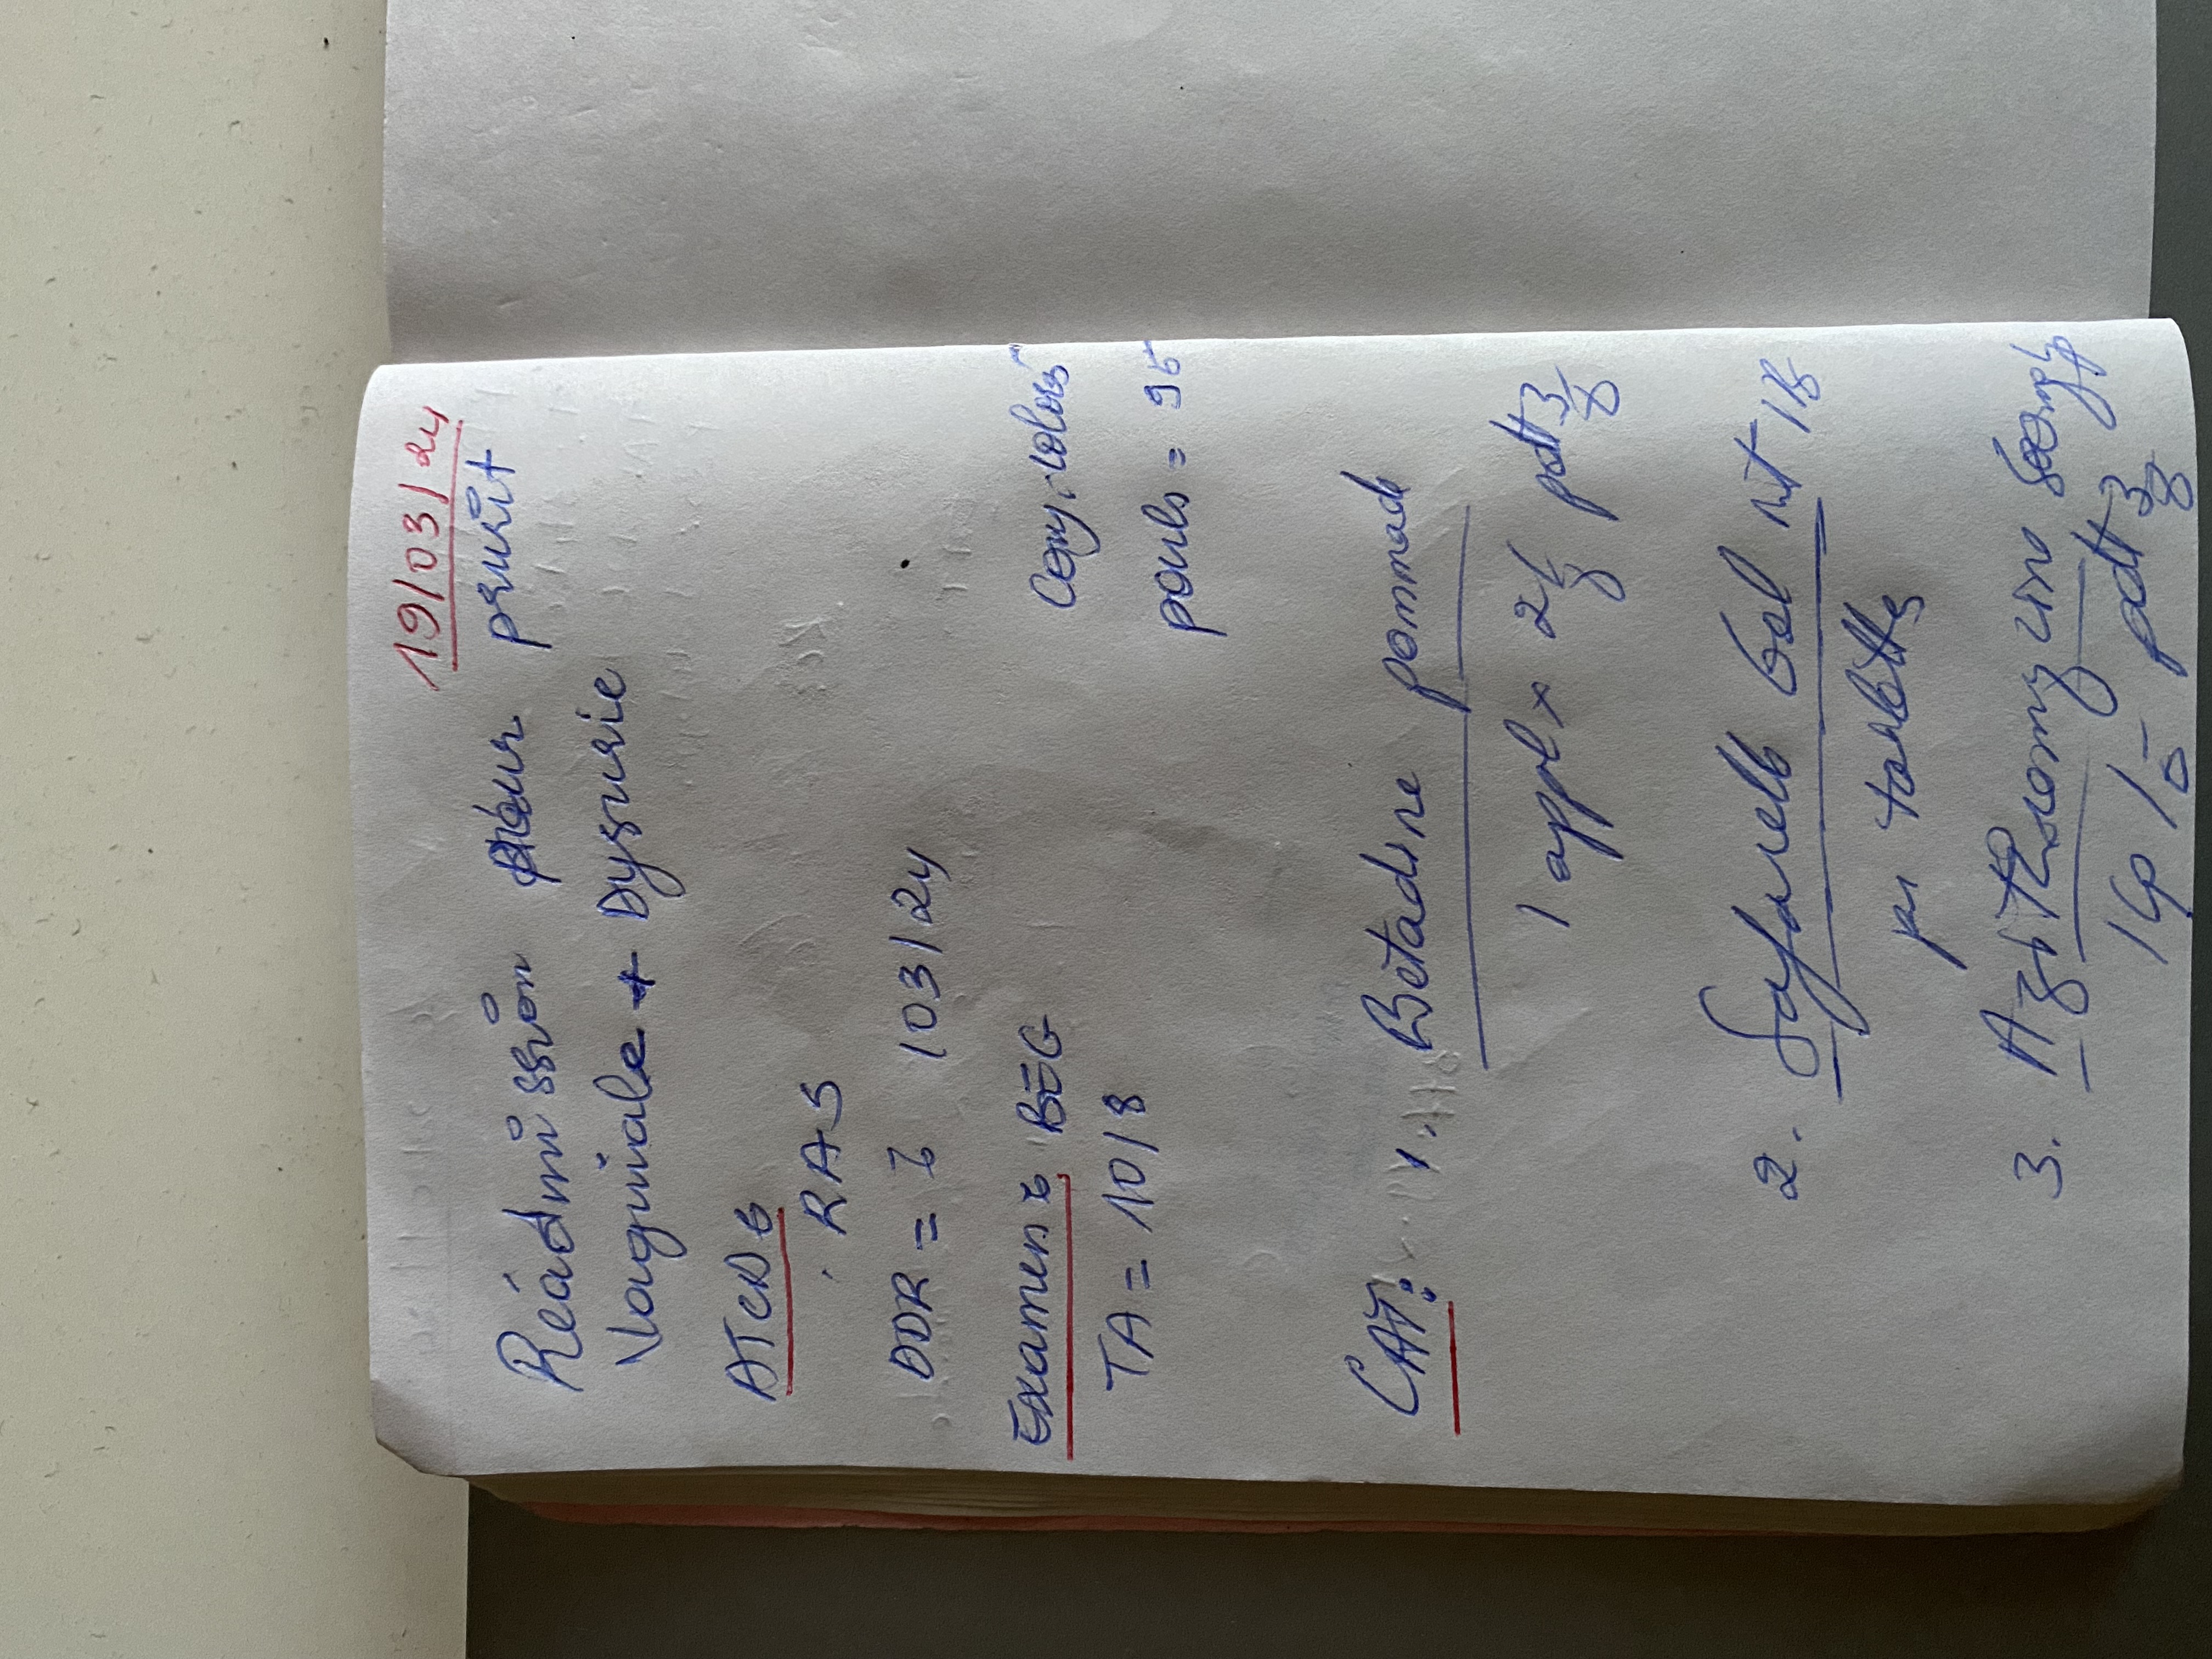 19/03/24
Réadmission pour prurit
Vaginale + Dysurie
ATCD :
. RAS
DDR = /03/24
Examen : BEG Conj. colorés
TA = 10/8 pouls = 95
CAT : 1. Betadine pommade
1 appl x 2/j pdt 3/
2. gel
par toilette
3. Azithromycin 500mg
1cp / j pdt 3